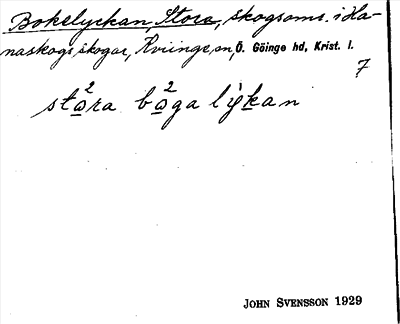 Bokelyckan, Stora, skogsomr. i Ha-
naskogs skogar, Kviinge sn, Ö. Göinge hd, Krist. l.
7
sto²ra bo²ga lỳkan
JOHN SVENSSON 1929